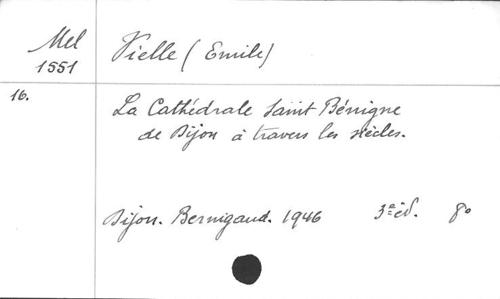 Mel
1551
Vielle (Emile)
16.
La Cathédrale Saint Bénigne
de Dijon à travers les siècles.
Dijon. Bernigaud. 1946 3e éd. 8o